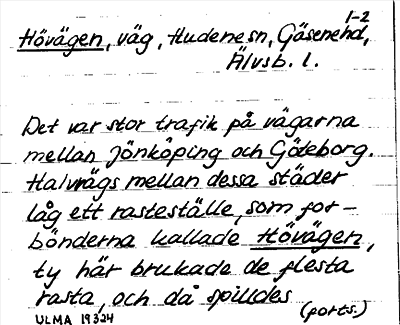 1-2
Hövägen, väg, Hudenesn, Gäsenehd,
Älvsb. l.
Det var stor trafik på vägarna
mellan Jönköping och Göteborg.
Halvvägs mellan dessa städer
låg ett rasteställe, som for-
bönderna kallade Hövägen,
ty här brukade de flesta
rasta, och då spilldes
(forts.)
ULMA 19324